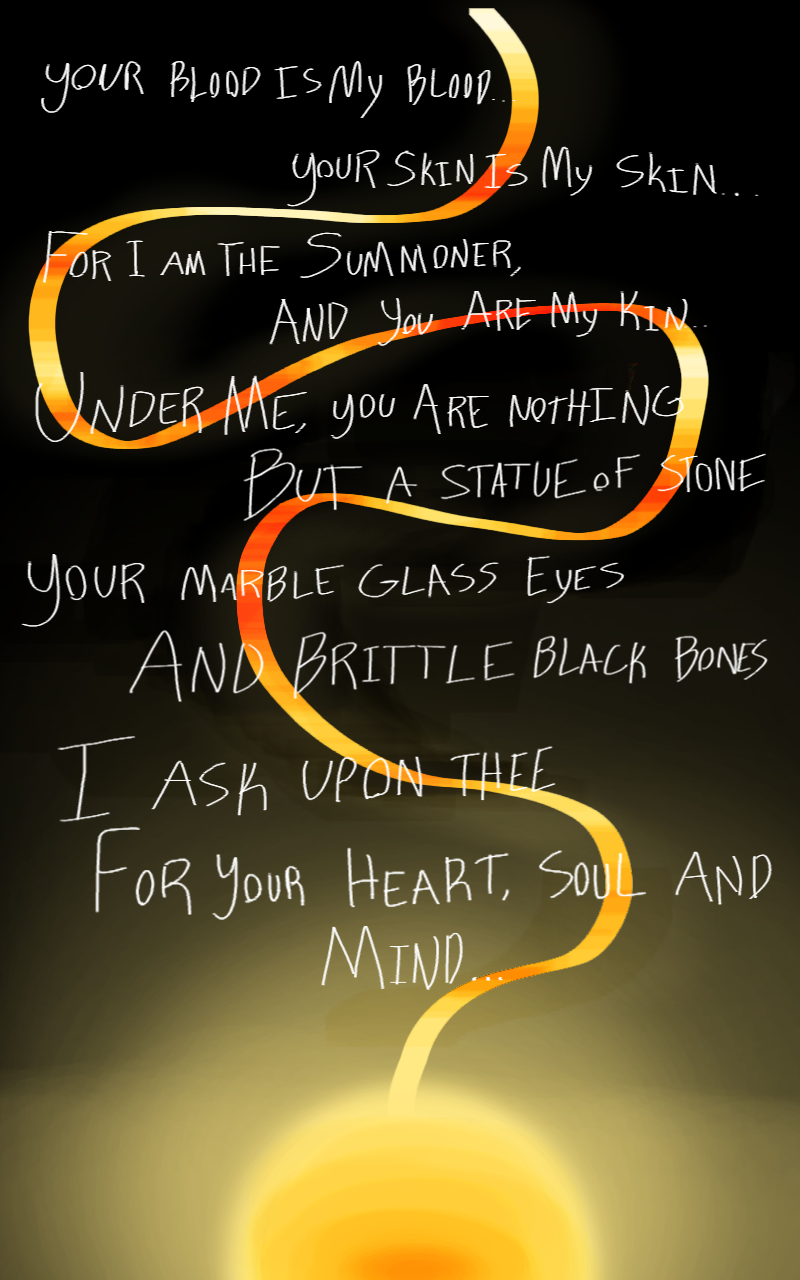 YOUR BLOOD IS MY BLOOD...
YOUR SKIN IS MY SKIN...
FOR I AM THE SUMMONER,
AND YOU ARE MY KIN..
UNDER ME, YOU ARE NOTHING
BUT A STATUE OF STONE
YOUR MARBLE GLASS EYES
AND BRITTLE BLACK BONES
I ASK UPON THEE
FOR YOUR HEART, SOUL AND
MIND...